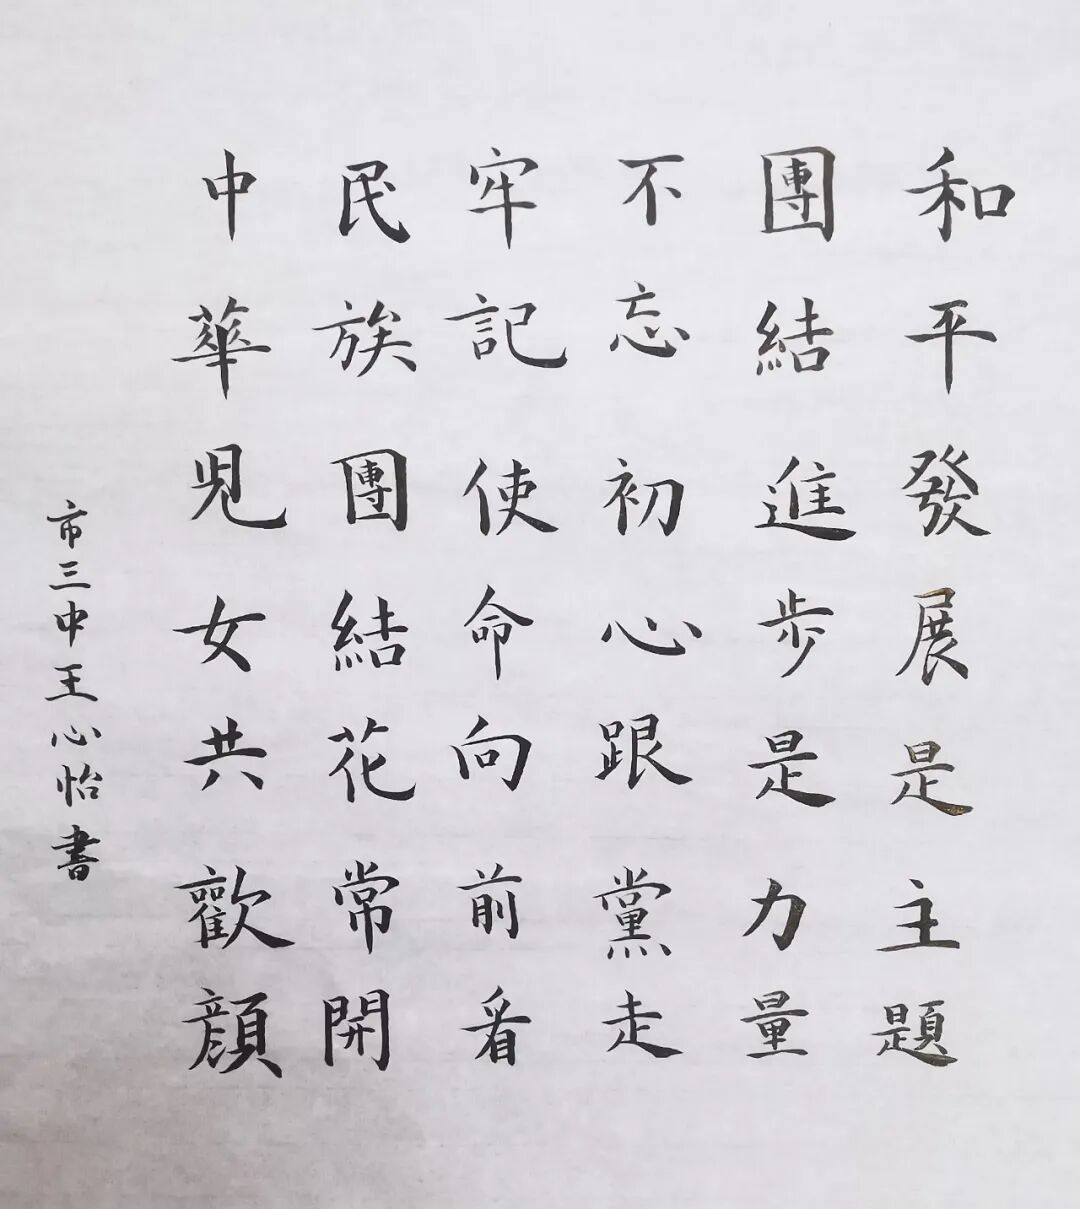 和平發展是主題
團結進步是力量
不忘初心跟黨走
牢記使命向前看
民族團結花常開
中華兒女共歡顔
市三中王心怡書